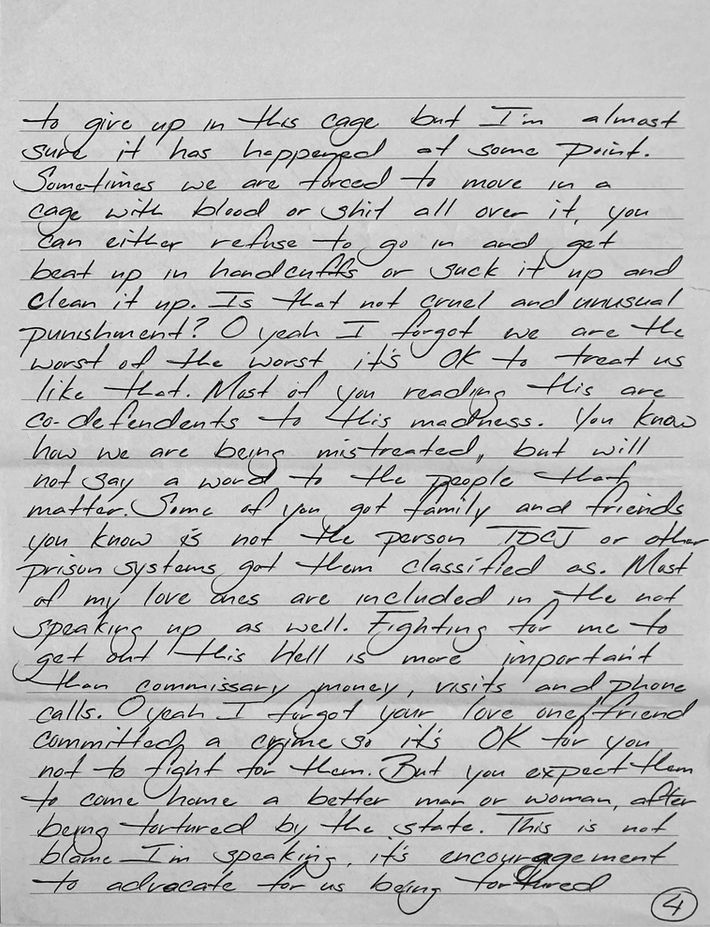 to give up in this cage but I'm almost
sure it has happened at some point.
Sometimes we are forced to move in a
cage with blood or shit all over it, you
can either refuse to go in and get
beat up in handcuffs or suck it up and
clean it up. Is that not cruel and unusual
punishment? O yeah I forgot we are the
worst of the worst it's OK to treat us
like that. Most of you reading this are
co-defendents to this madness. You know
how we are being mistreated, but will
not say a word to the people that
matter. Some of you got family and friends
you know is not the person TDCJ or other
prison systems got them classified as. Most
of my love ones are included in the not
speaking up as well. Fighting for me to
get out this Hell is more important
than commissary money, visits and phone
calls. O yeah I forgot your love one/friend
committed a crime so it's OK for you
not to fight for them. But you expect them
to come home a better man or woman, after
being tortured by the state. This is not
blame I'm speaking, it's encouragement
to advocate for us being tortured
4